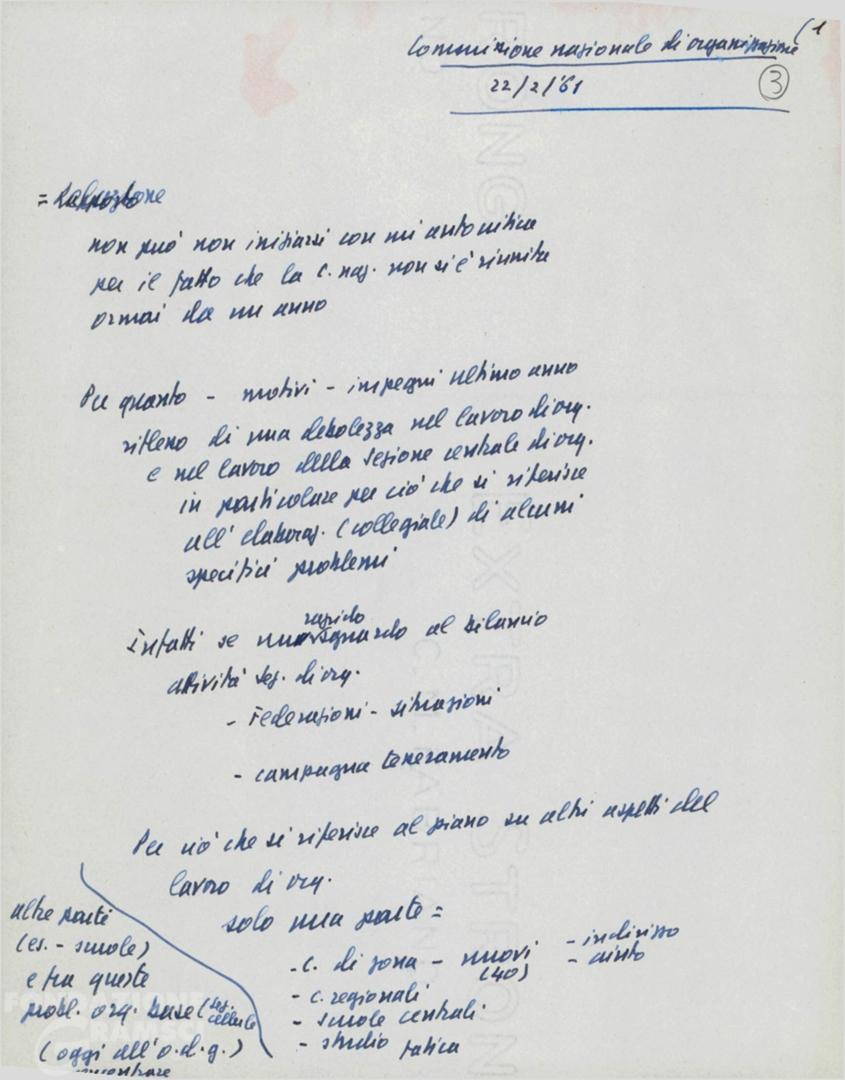 (1
Commissione nazionale di organizzazione
22/2/'61
3
= 
non può non iniziarsi con un'autocritica
per il fatto che la C. naz. non si è riunita
ormai da un anno
Per quanto - motivi - impegni ultimo anno
riflesso di una debolezza nel lavoro di org.
e nel lavoro della Sezione centrale di org.
in particolare per ciò che si riferisce
all'elaboraz. (collegiale) di alcuni
specifici problemi
Infatti se uno rapido sguardo al bilancio
attività Sez. di org.
- Federazioni - situazioni
- campagna tesseramento
Per ciò che si riferisce al piano su altri aspetti del
lavoro di org.
solo una parte =
- C. di zona - nuovi (40) - indirizzo
- aiuto
- C. regionali
- scuole centrali
- studio
altre parti
(es. - scuole)
e fra queste
probl. org. base (sez. cellule
(oggi all'o.d.g.)
FONDAZIONE
GRAMSCI
EXTRA STRONG